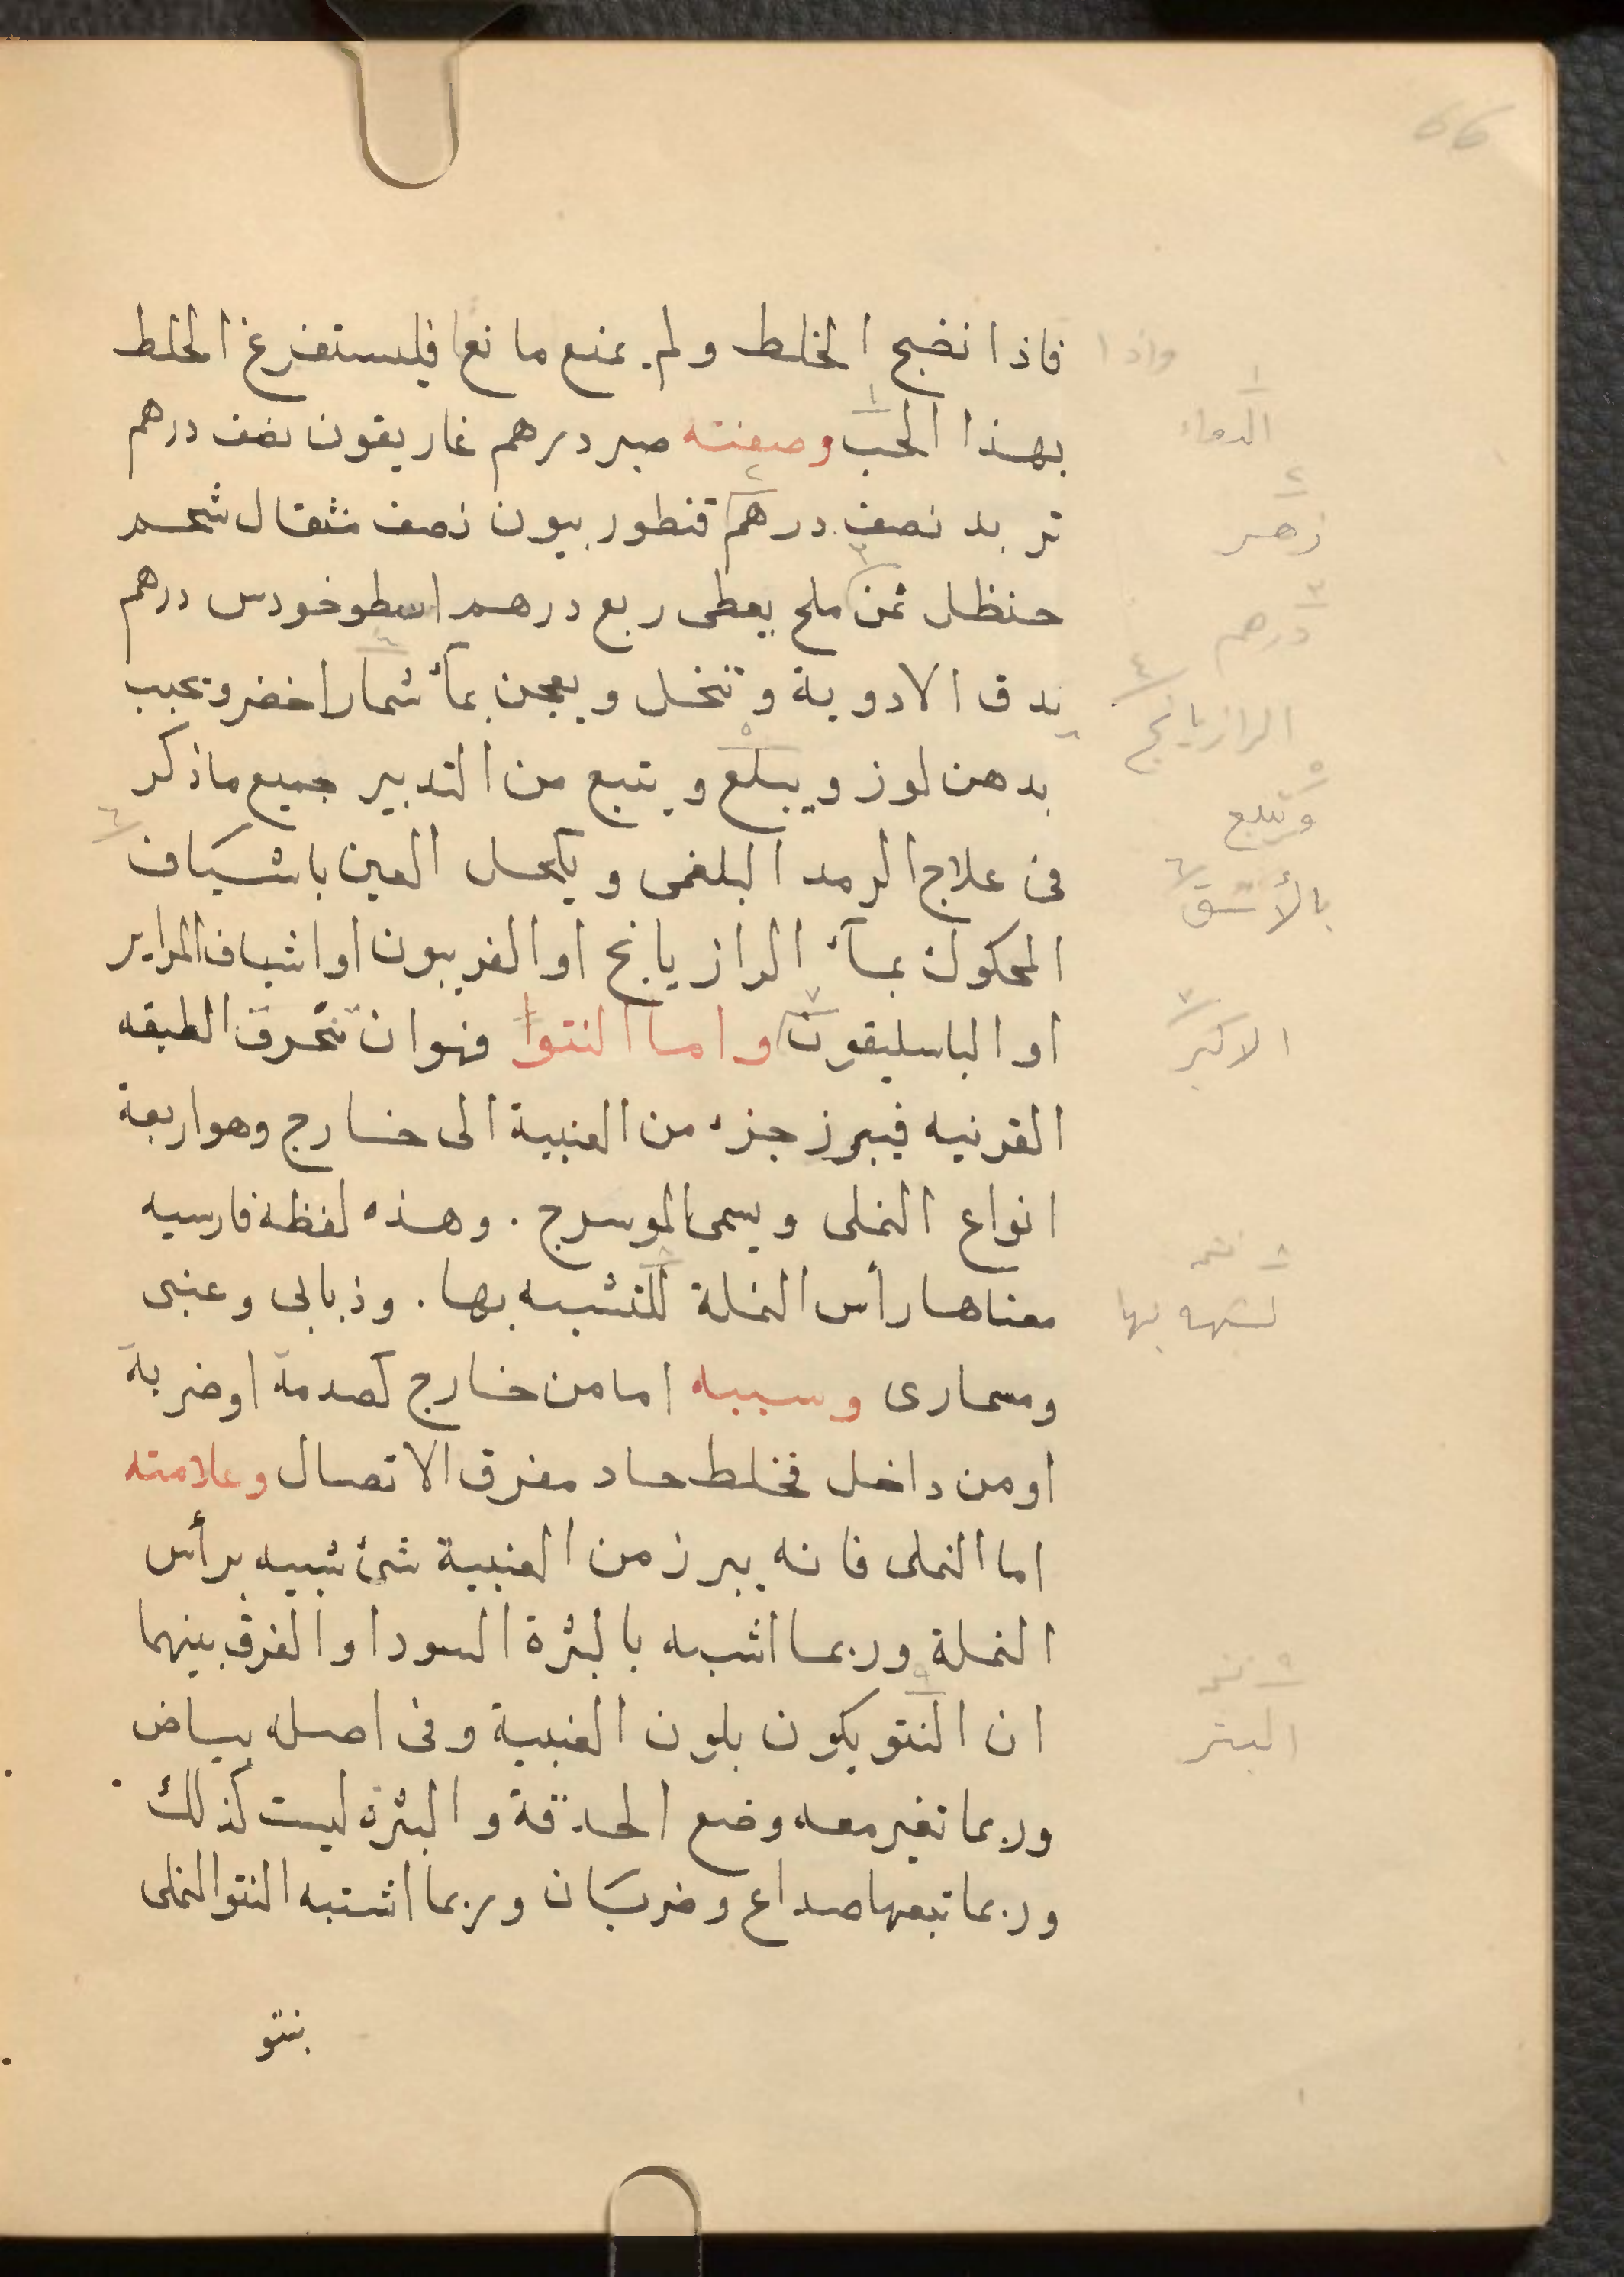 66
فاذا نضج الخلط ولم يمنع مانعا فليستفرغ الخلط
بهذا الحب وصفته صبر درهم غاريقون نصف درهم
تربد نصف درهم قنطوربيون نصف مثقال شحم
حنظل ثمن ملح يعطى ربع درهم اسطوخودس درهم
يدق الادوية وتنخل ويعجن بمأ شمار اخضر وتحبب
بدهن لوز ويبلع ويتبع من التدبير جميع ماذكر
فى علاج الرمد البلغمى ويكحل العين باشياف
المحكوك بمآء الرازيانج او الفربيون او اشياف المراير
او الباسليقون واما النتوا فهو ان تتخرق الطبقه
القرنيه فيبرز جزء من العنبية الى خارج وهو اربعة
انواع النملى ويسمى الموسرج . وهذه لفظة فارسيه
معناها رأس النملة للتشبيه بها . وذبابى وعنبى
ومسمارى وسببه اما من خارج كصدمة او ضربة
او من داخل فخلط حاد مفرق الاتصال وعلامته
اما النملى فانه يبرز من العنبية شئ شبيه برأس
النملة وربما اشبه بالبثرة السودا والفرق بينهما
ان النتو يكون بلون العنبية وفى اصله بياض
وربما تغير معه وضع الحدقة والبثرة ليست كذلك
وربما تبعها صداع وضربان وربما اشتبه النتو النملى
بنتو
واذا
١
٢
زهر
٣
درهم
٤
الرازيانج
٥
وتبلع
٦
بالأشق
٧
الاكبر
٨
لشبهه بها
٩
البثر